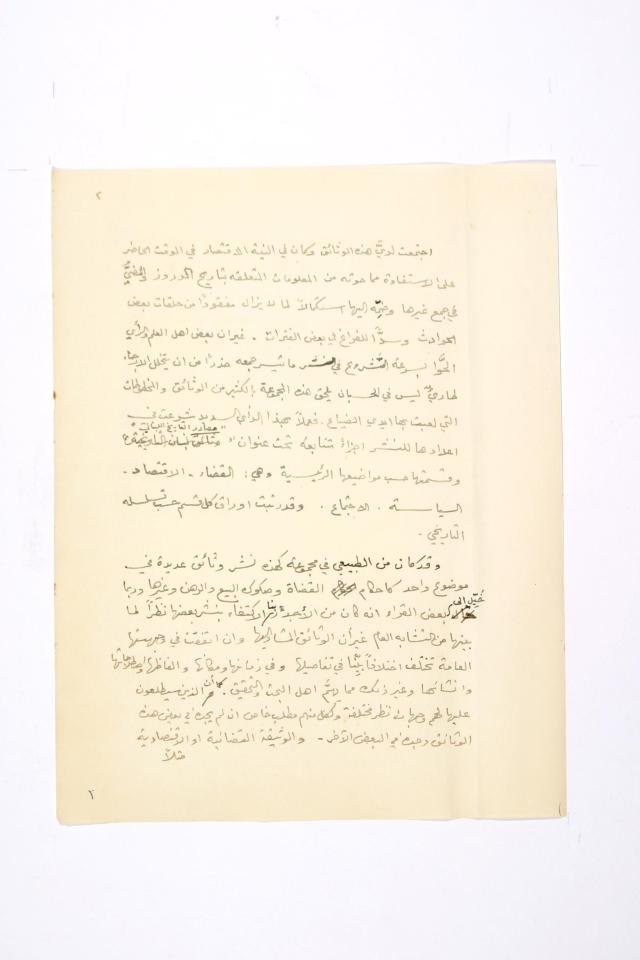 ٢
اجتمعت لديَّ هذه الوثائق وكان في النية الاقتصار في الوقت الحاضر
على الاستفادة مما حوته من المعلومات المتعلقة بتاريخ الدروز والمضيّ
في جمع غيرها وضمّه اليها استكمالاً لما لا يزال مفقوداً من حلقات بعض
الحوادث وسدًّا للفراغ في بعض الفترات . غير ان بعض اهل العلم والرأي
الحّوا بسرعة الشروع في نشر ما تيسر جمعه حذراً من ان
طارئٌ ليس في الحسبان يلحق هذه المجموعة بالكثير من الوثائق والمخطوطات
التي لعبت بها ايدي الضياع . فعملاً بهذا الرأي السديد شرعت في
"مصادر التاريخ اللبناني"
اعدادها للنشر اجزاءً متتابعة تحت عنوان
وقسمتها حسب مواضيعها الرئيسية وهي : القضاء . الاقتصاد .
السياسة . الاجتماع . وقد رتبت اوراق كل قسم حسب تسلسله
التاريخي .
وقد كان من الطبيعي في مجموعة كهذه نشر وثائق عديدة في
موضوع واحد كاحكام القضاة وصكوك البيع والرهن وغيرها وربما
خُيّل الى
بعض القراء انه كان من الأجدر بنا الاكتفاء بنشر بعضها نظراً لما
بينها من التشابه العام غير أن الوثائق المشار اليها وان اتفقت في وجهتها
العامة تختلف اختلافاً بيّناً في تفاصيلها وفي زمانها ومكانها والفاظها واصطلاحاتها
وانشائها وغير ذلك مما يهمّ اهل البحث والتحقيق . كما أن الذين سيطلعون
عليها لهم وجهات نظر مختلفة ولكل منهم مطلب خاص ان لم يجده في بعض هذه
الوثائق وجده في البعض الآخر . والوثيقة القضائية او الاقتصادية
مثلاً
٢